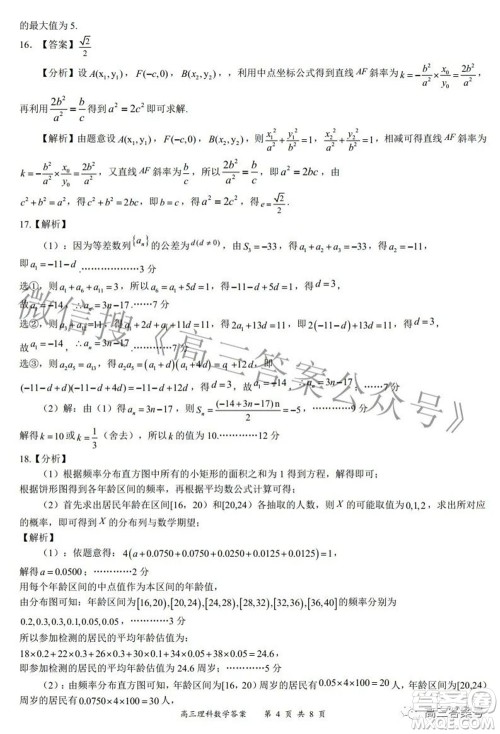 的最大值为 5.
16.【答案】√2/2
【分析】设 A(x₁,y₁)，F(−c,0)，B(x₂,y₂)，，利用中点坐标公式得到直线 AF 斜率为 k=−b²/a²×x₀/y₀=2b²/a²，
再利用 2b²/a²=b/c 得到 a²=2c² 即可求解.
【解析】由题意设 A(x₁,y₁)，F(−c,0)，B(x₂,y₂)，则 x₁²/a²+y₁²/b²=1，x₂²/a²+y₂²/b²=1，相减可得直线 AF 斜率为
k=−b²/a²×x₀/y₀=2b²/a²，又直线 AF 斜率为 b/c，所以 2b²/a²=b/c，即 a²=2bc，由
c²+b²=a²，得 c²+b²=2bc，即 b=c，得 a²=2c²，得 e=√2/2.
17.【解析】
（1）：因为等差数列{aₙ}的公差为 d(d≠0)，由 S₃=−33，得 a₁+a₂+a₃=−33，得 a₁+d=−11，
即 a₁=−11−d ……………3 分
选①，则 a₁+a₆+a₁₁=3，所以 a₁+5d=1，得 −11−d+5d=1，得 d=3，
故 a₁=−14，∴aₙ=3n−17……………7 分
选②，则 2(a₁+4d)=a₁+2d+a₁+11d+11，即 2(−11−d+4d)=−11−d+2d−11−d+11d+11，得 d=3，
故 a₁=−14，∴aₙ=3n−17…………7 分
选③，则
(−11−d+d)(−11−d+4d)=−11−d+12d，得 d=3，故 a₁=−14，∴aₙ=3n−17……………7 分
（2）：解：由（1）得 aₙ=3n−17，则 Sₙ=(−14+3n−17)n/2=−5，…………9 分
解得 k=10 或 k=1/3（舍去），所以 k 的值为 10.…………12 分
18.【分析】
（1）根据频率分布直方图中所有的小矩形的面积和为 1 得到方程，解得即可；
根据饼形图得到各年龄区间的频率，再根据平均数公式计算可得；
（2）首先求出年龄在区间[16，20）和[20,24）各抽取的人数，则 X 的可能取值为 0,1,2，求出所对应
的概率，即可得到 X 的分布列与数学期望；
【解析】
（1）：依题意得：4(a+0.0750+0.0750+0.0250+0.0125+0.0125)=1，
解得 a=0.0500；…………2 分
用每个年龄区间的中点值作为本区间的年龄值，
由分布图可知：年龄区间在[16,20),[20,24),[24,28),[28,32),[32,36),[36,40)的频率分别为
0.2,0.3,0.3,0.1,0.05,0.05，…………3 分
所以参加检测的居民的平均年龄估值为：
18×0.2+22×0.3+26×0.3+30×0.1+34×0.05+38×0.05=24.6，
即参加检测的居民的平均年龄估值为 24.6 周岁；…………5 分
（2）：由频率分布直方图可知，年龄在[16，20）周岁的居民人数为 0.05×4×100=20 人，年龄在[20，24）
周岁的居民人数为 0.0750×4×100=30 人，
高三理科数学答案 第 4 页 共 8 页
微信搜《高三答案公众号》
高三答案号